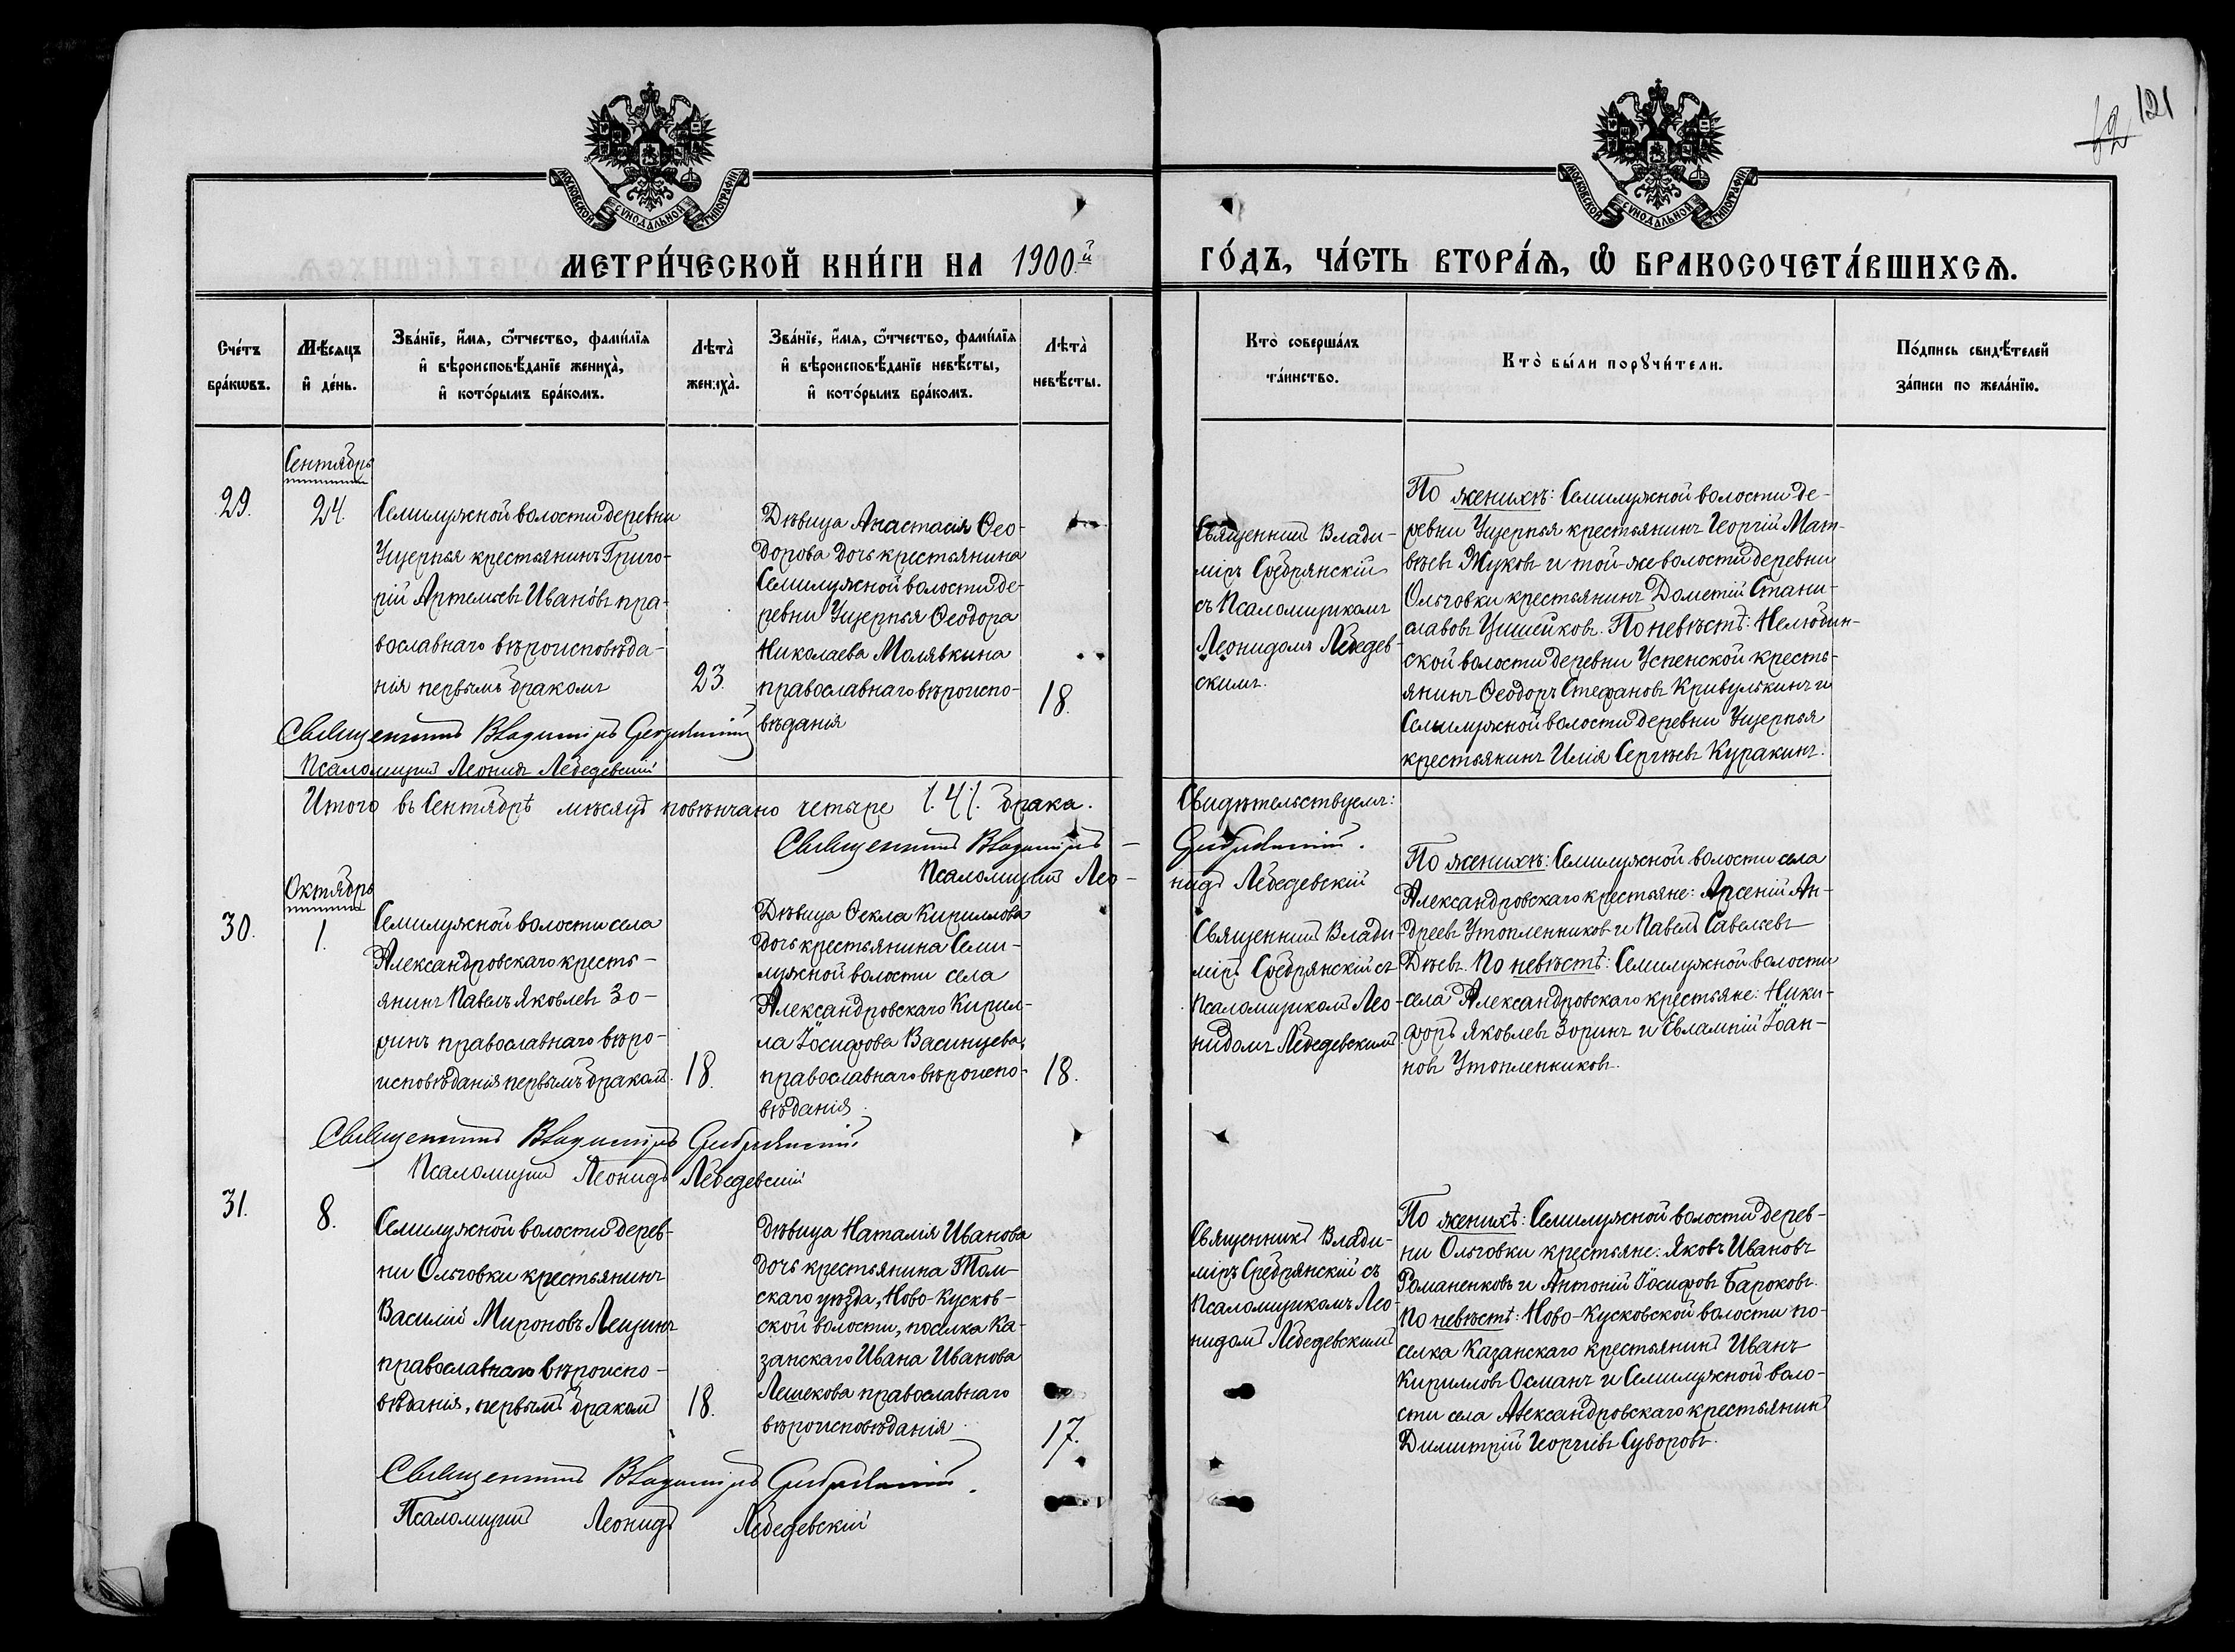 121
МОСКОВСКОЙ СУНОДАЛЬНОЙ ТИПОГРАФІИ
МОСКОВСКОЙ СУНОДАЛЬНОЙ ТИПОГРАФІИ
МЕТРИ́ЧЕСКОЙ КНИ́ГИ НА 1900.й
ГО́ДЪ, ЧА́СТЬ ВТОРА́Ѧ, Ѽ БРАКОСОЧЕТА́ВШИХСѦ.
Сче́тъ
бра́кѡвъ.
Мѣ́сѧцъ
и҆ де́нь.
Зва́нїе, и҆́мѧ, ѻ҆́тчество, фами́лїѧ
и҆ вѣроисповѣ́данїе жениха̀,
и҆ кото́рымъ бра́комъ.
Лѣта̀
жениха̀.
Зва́нїе, и҆́мѧ, ѻ҆́тчество, фами́лїѧ
и҆ вѣроисповѣ́данїе невѣ́сты,
и҆ кото́рымъ бра́комъ.
Лѣта̀
невѣ́сты.
Кто̀ соверша́лъ
та́инство.
Кто̀ бы́ли порꙋчи́тели.
По́дпись свидѣ́телей
за́писи по жела́нїю.
Сентябрь
29.
24.
Семилужной волости деревни
Ущерпья крестьянинъ Григо-
рій Артемьевъ Ивановъ пра-
вославнаго вѣроисповѣда-
нія первымъ бракомъ
23.
Дѣвица Анастасія Ѳео-
дорова дочь крестьянина
Семилужной волости де-
ревни Ущерпья Ѳеодора
Николаева Малявкина
православнаго вѣроиспо-
вѣданія
18.
Священникъ Влади-
міръ Сребрянскій
съ Псаломщикомъ
Леонидомъ Лебедев-
скимъ.
По женихѣ: Семилужной волости де-
ревни Ущерпья крестьянинъ Георгій Мат-
вѣевъ Жуковъ и той-же волости деревни
Ольговки крестьянинъ Дометій Стани-
славовъ Цишейковъ. По невѣстѣ: Нелюбин-
ской волости деревни Успенской кресть-
янинъ Ѳеодоръ Стефановъ Кривулькинъ и
Семилужной волости деревни Ущерпья
крестьянинъ Илія Сергѣевъ Куракинъ.
Священникъ Владиміръ Сребрянскій
Псаломщикъ Леонидъ Лебедевскій
Итого въ Сентябрѣ мѣсяцѣ повѣнчано четыре /.4/. брака.
Свидѣтельствуемъ:
Священникъ Владиміръ - Сребрянскій.
Псаломщикъ Лео- нидъ Лебедевскій
Октябрь
30.
1.
Семилужной волости села
Александровскаго кресть-
янинъ Павелъ Яковлевъ Зо-
ринъ православнаго вѣро-
исповѣданія первымъ бракомъ.
18.
Дѣвица Ѳекла Кириллова
дочь крестьянина Семи-
лужной волости села
Александровскаго Кирил-
ла Іосифова Васинцева,
православнаго вѣроиспо-
вѣданія.
18.
Священникъ Влади-
міръ Сребрянскій съ
Псаломщикомъ Лео-
нидомъ Лебедевскимъ
По женихѣ: Семилужной волости села
Александровскаго крестьяне: Арсеній Ан-
дреевъ Утопленниковъ и Павелъ Савельевъ
Дѣевъ. По невѣстѣ: Семилужной волости
села Александровскаго крестьяне: Ники-
форъ Яковлевъ Зоринъ и Евлампій Іоан-
новъ Утопленниковъ.
Священникъ Владиміръ Сребрянскій
Псаломщикъ Леонидъ Лебедевскій
31.
8.
Семилужной волости дерев-
ни Ольговки крестьянинъ
Василій Мироновъ Лещинъ
православнаго вѣроиспо-
вѣданія, первымъ бракомъ
18.
Дѣвица Наталія Иванова
дочь крестьянина Том-
скаго уѣзда, Ново-Кусков-
ской волости, поселка Ка-
занскаго Ивана Иванова
Лешекова православнаго
вѣроисповѣданія
17.
Священникъ Влади-
міръ Сребрянскій съ
Псаломщикомъ Лео-
нидомъ Лебедевскимъ
По женихѣ: Семилужной волости дерев-
ни Ольговки крестьяне: Яковъ Ивановъ
Романенковъ и Антоній Іосифовъ Бароковъ.
По невѣстѣ: Ново-Кусковской волости по-
селка Казанскаго крестьянинъ Иванъ
Кирилловъ Османъ и Семилужной воло-
сти села Александровскаго крестьянинъ
Димитрій Георгіевъ Суворовъ.
Священникъ Владиміръ Сребрянскій.
Псаломщикъ Леонидъ Лебедевскій